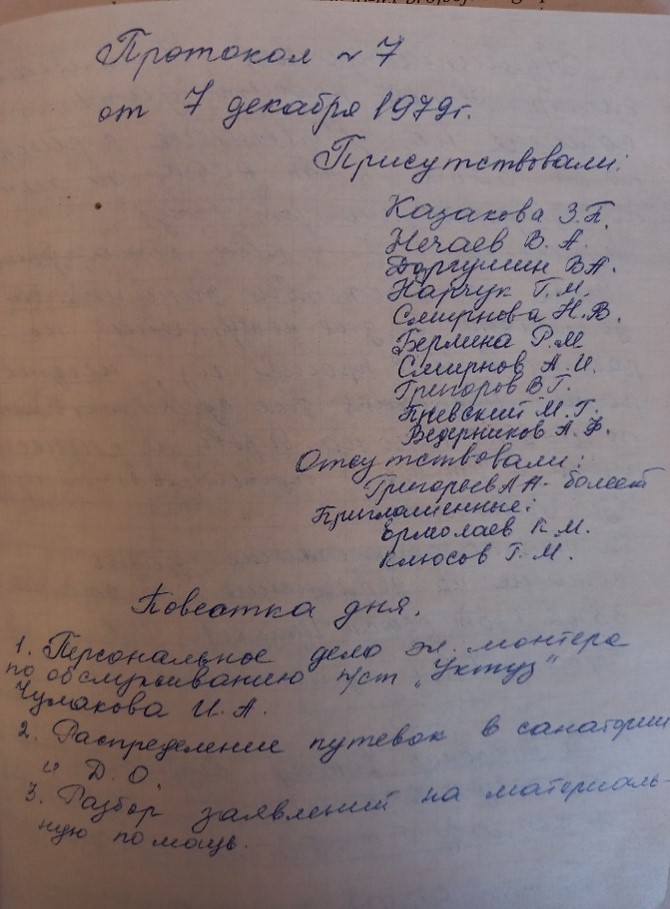 Протокол № 7
от 7 декабря 1979г.
Присутствовали:
Казакова З.П.
Нечаев В. А.
Даргумин В.А.
Нарчук Г.М.
Смирнова Н.В.
Берлина Р.М.
Смирнов А.И.
Григоров В.Г.
Гневский М.Г.
Ведерников А.Ф.
Отсутствовали:
Григорьев А А - болеет
Приглашенные:
Ермолаев К.М.
Клюсов Г.М.
Повестка дня.
1. Персональное дело эл. монтера
по обслуживанию п/ст „Уктуз"
Чулакова И.А.
2. Распределение путевок в санатории
и Д.О.
3. Разбор заявлений на материаль-
ную помощь.